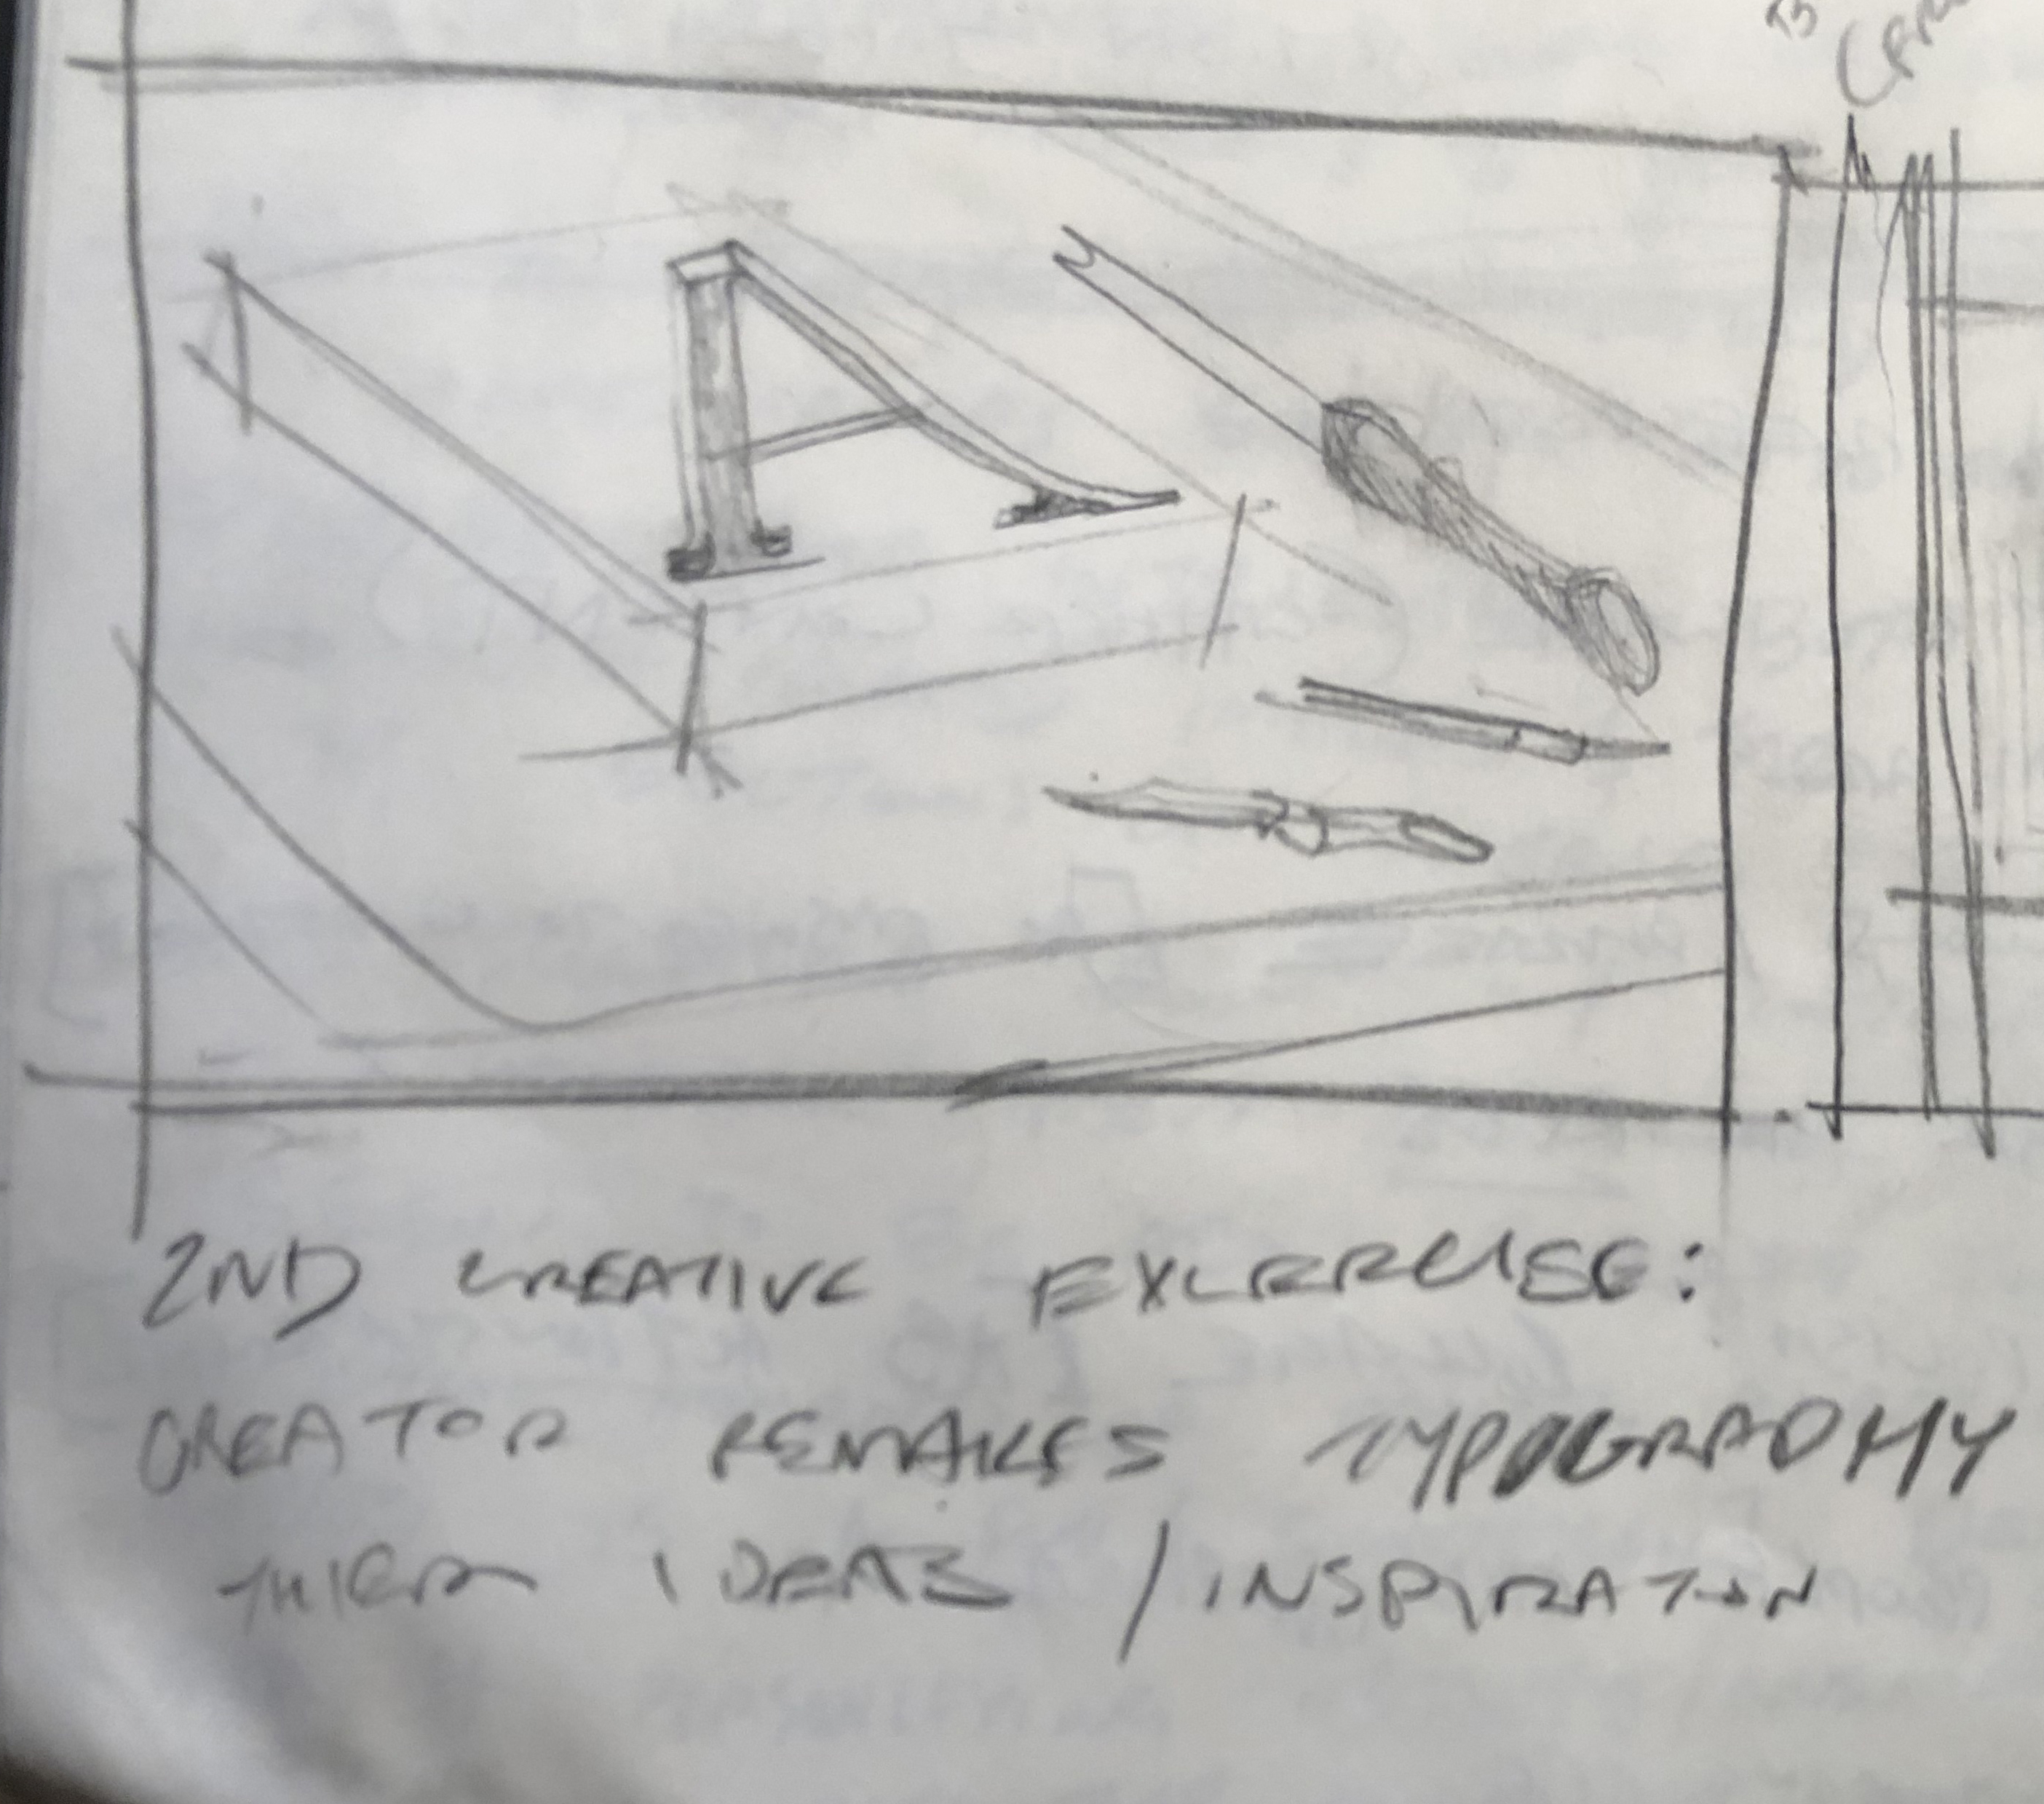 A
2ND CREATIVE EXCERCISE:
CREATOR REMAKES TYPOGRAPHY
THIER IDEAS / INSPIRATION